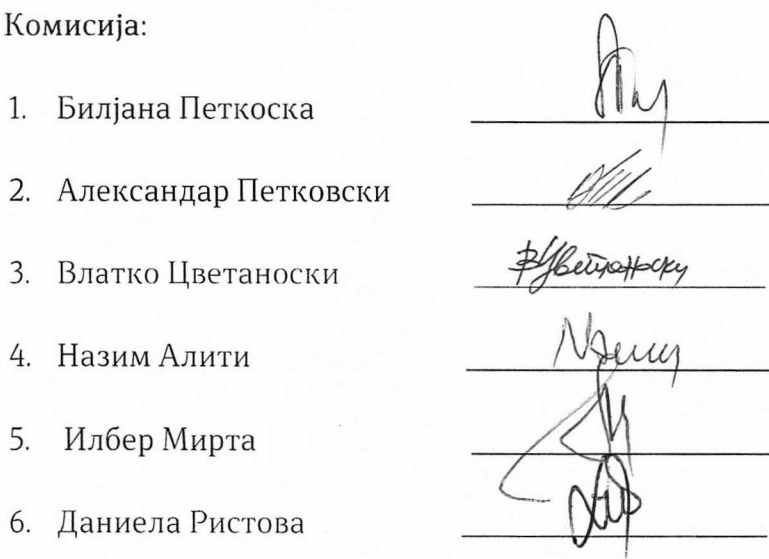 Комисија:
1. Билјана Петкоска
2. Александар Петковски
3. Влатко Цветаноски
4. Назим Алити
5. Илбер Мирта
6. Даниела Ристова